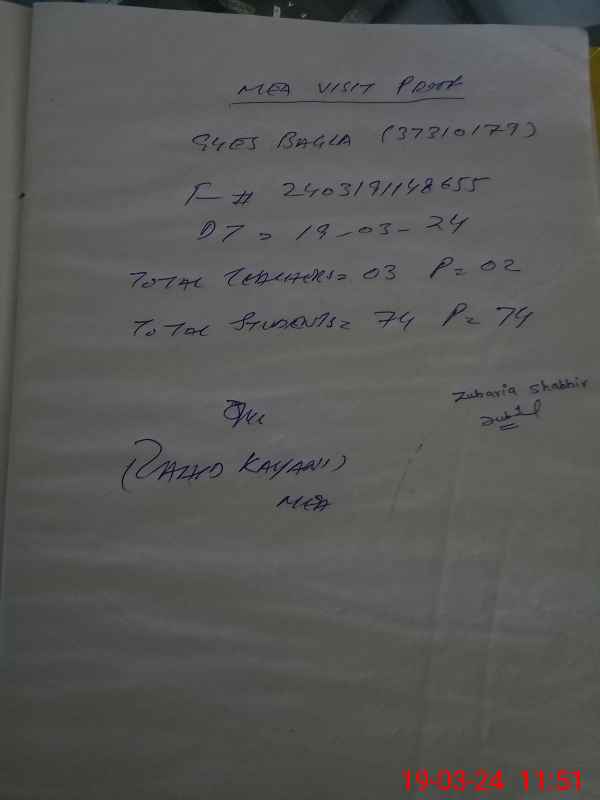 MEA VISIT PROOF
GGES BAGLA (37310179)
F-# 2403191148655
DT = 19-03-24
TOTAL TEACHERS= 03 P= 02
TOTAL STUDENTS= 74 P= 74
Zubaria Shabbir
KAYANI)
MEA
19-03-24 11:51